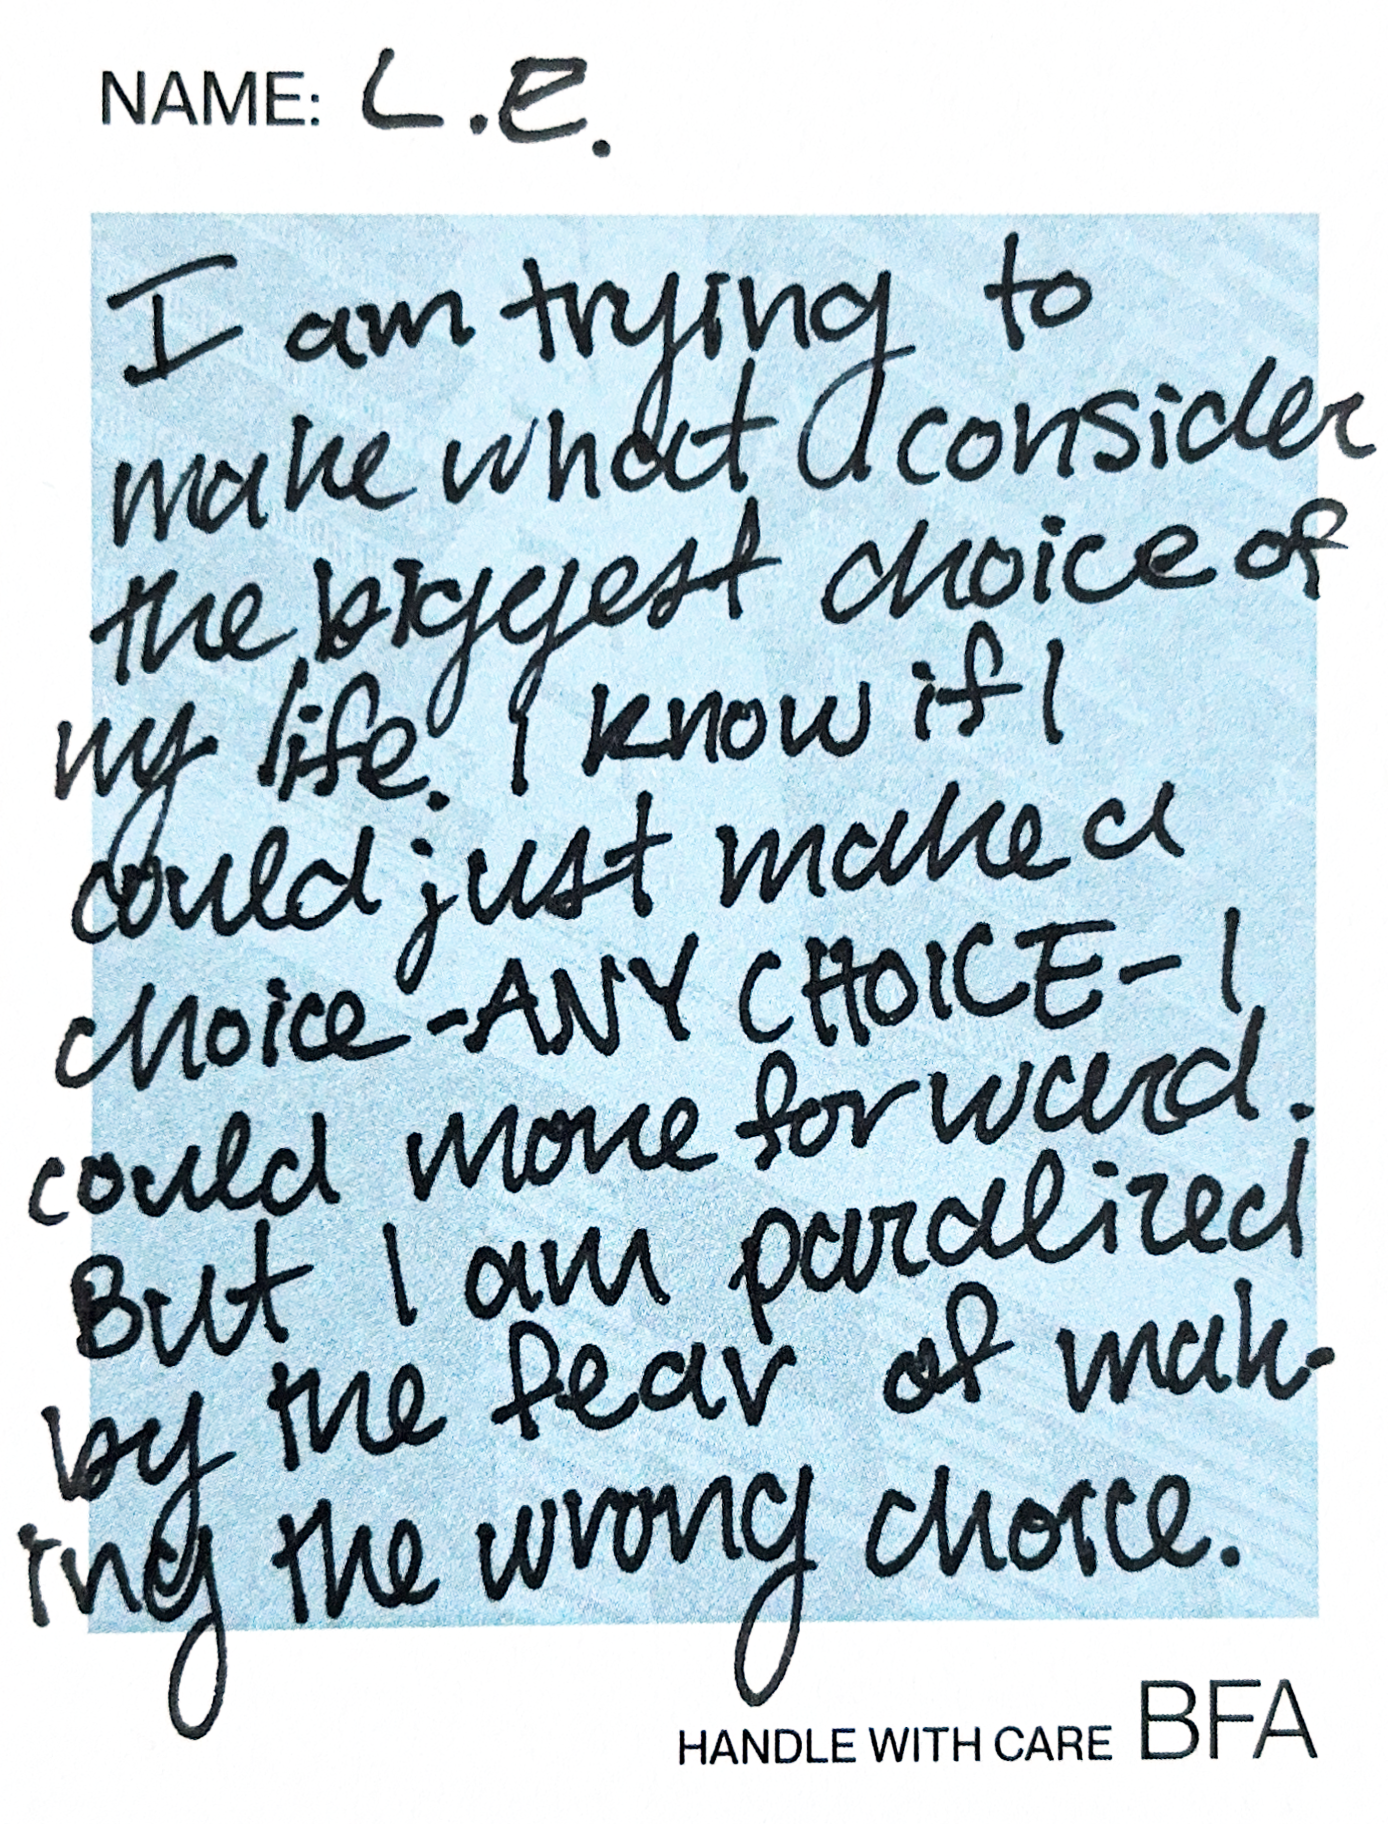 NAME: L.E.
I am trying to
make what I consider
the biggest choice of
my life. I know if I
could just make a
choice - ANY CHOICE - I
could move forward.
But I am paralized
by the fear of mak-
ing the wrong choice.
HANDLE WITH CARE BFA